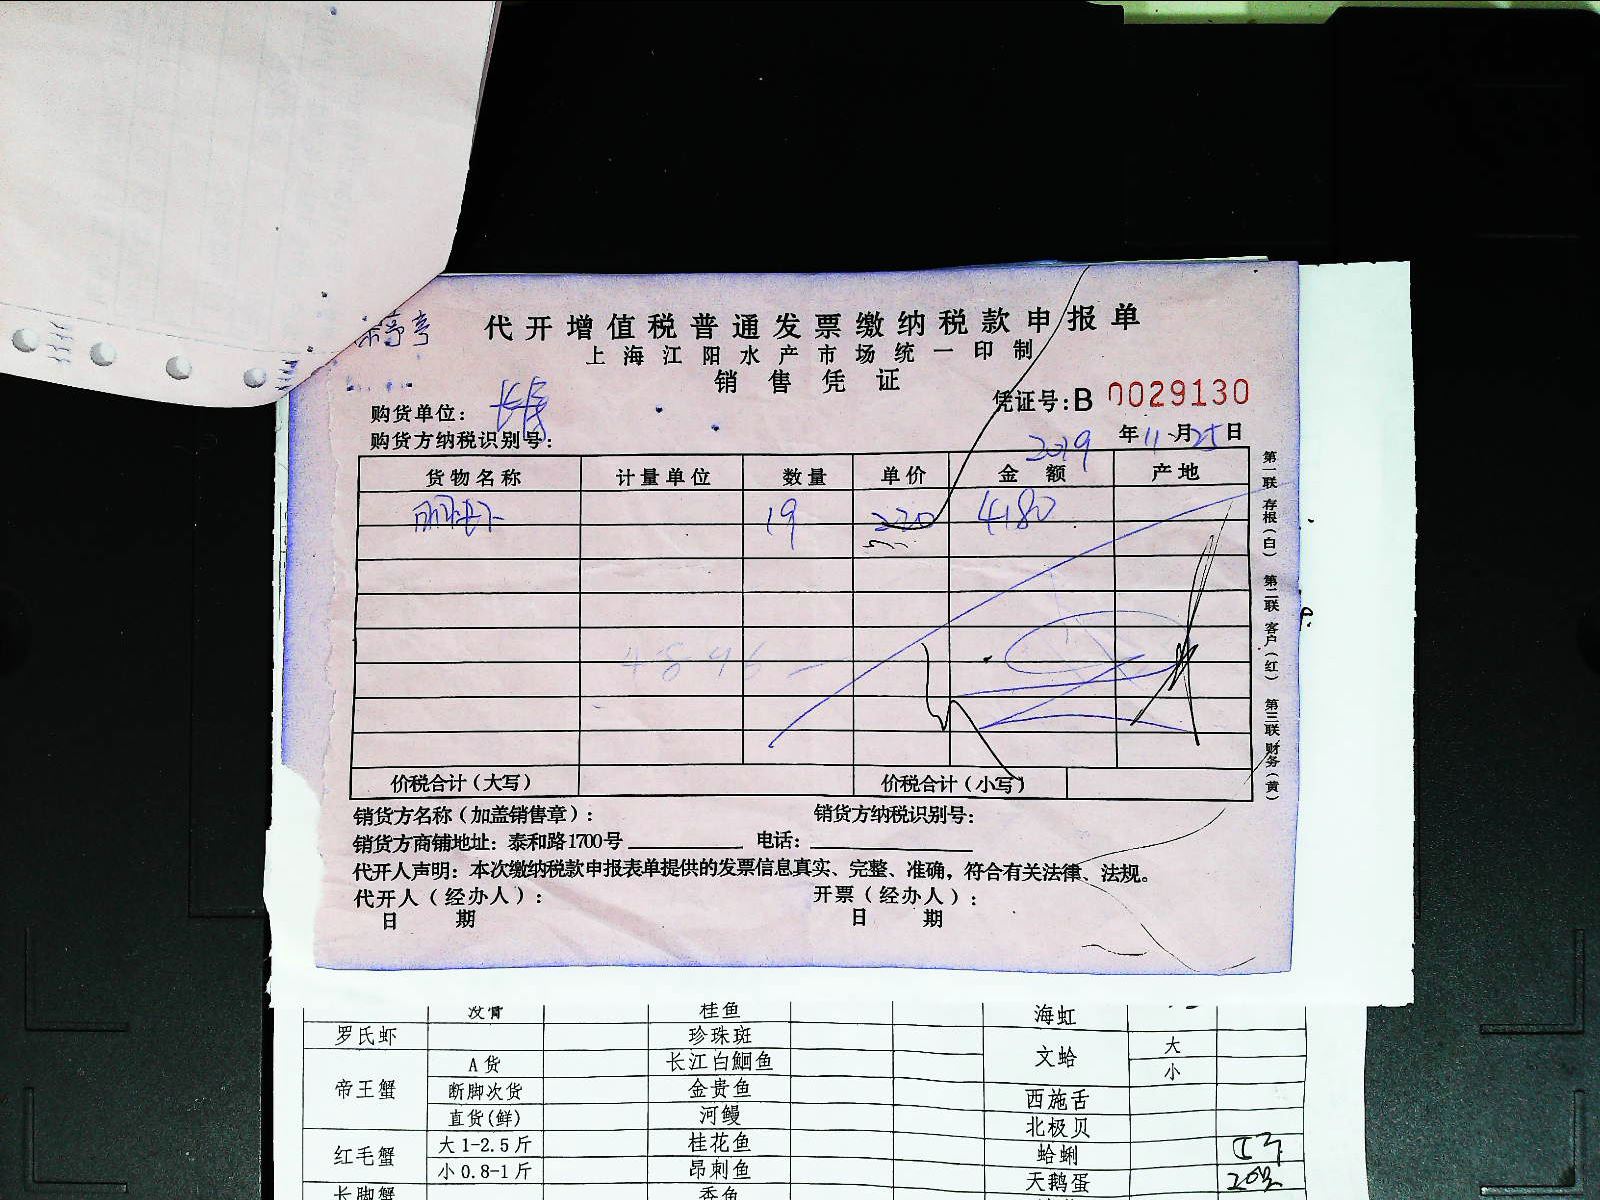 代开增值税普通发票缴纳税款申报单
上海江阳水产市场统一印制
销售凭证
凭证号：B 0029130
购货单位：
购货方纳税识别号：
2019年11月25日
货物名称 计量单位 数量 单价 金额 产地
19 220 4180
4896
价税合计（大写） 价税合计（小写）
销货方名称（加盖销售章）： 销货方纳税识别号：
销货方商铺地址：泰和路1700号 电话：
代开人声明：本次缴纳税款申报表单提供的发票信息真实、完整、准确，符合有关法律、法规。
代开人（经办人）： 开票（经办人）：
日期 日期
第一联 存根（白） 第二联 客户（红） 第三联 财务（黄）
没膏 桂鱼 海虹
罗氏虾 珍珠斑 文蛤 大
帝王蟹 A货 长江白鮰鱼 小
断脚次货 金贵鱼 西施舌
直货(鲜) 河鳗 北极贝
红毛蟹 大1-2.5斤 桂花鱼 蛤蜊
小0.8-1斤 昂刺鱼 天鹅蛋
长脚蟹 香鱼